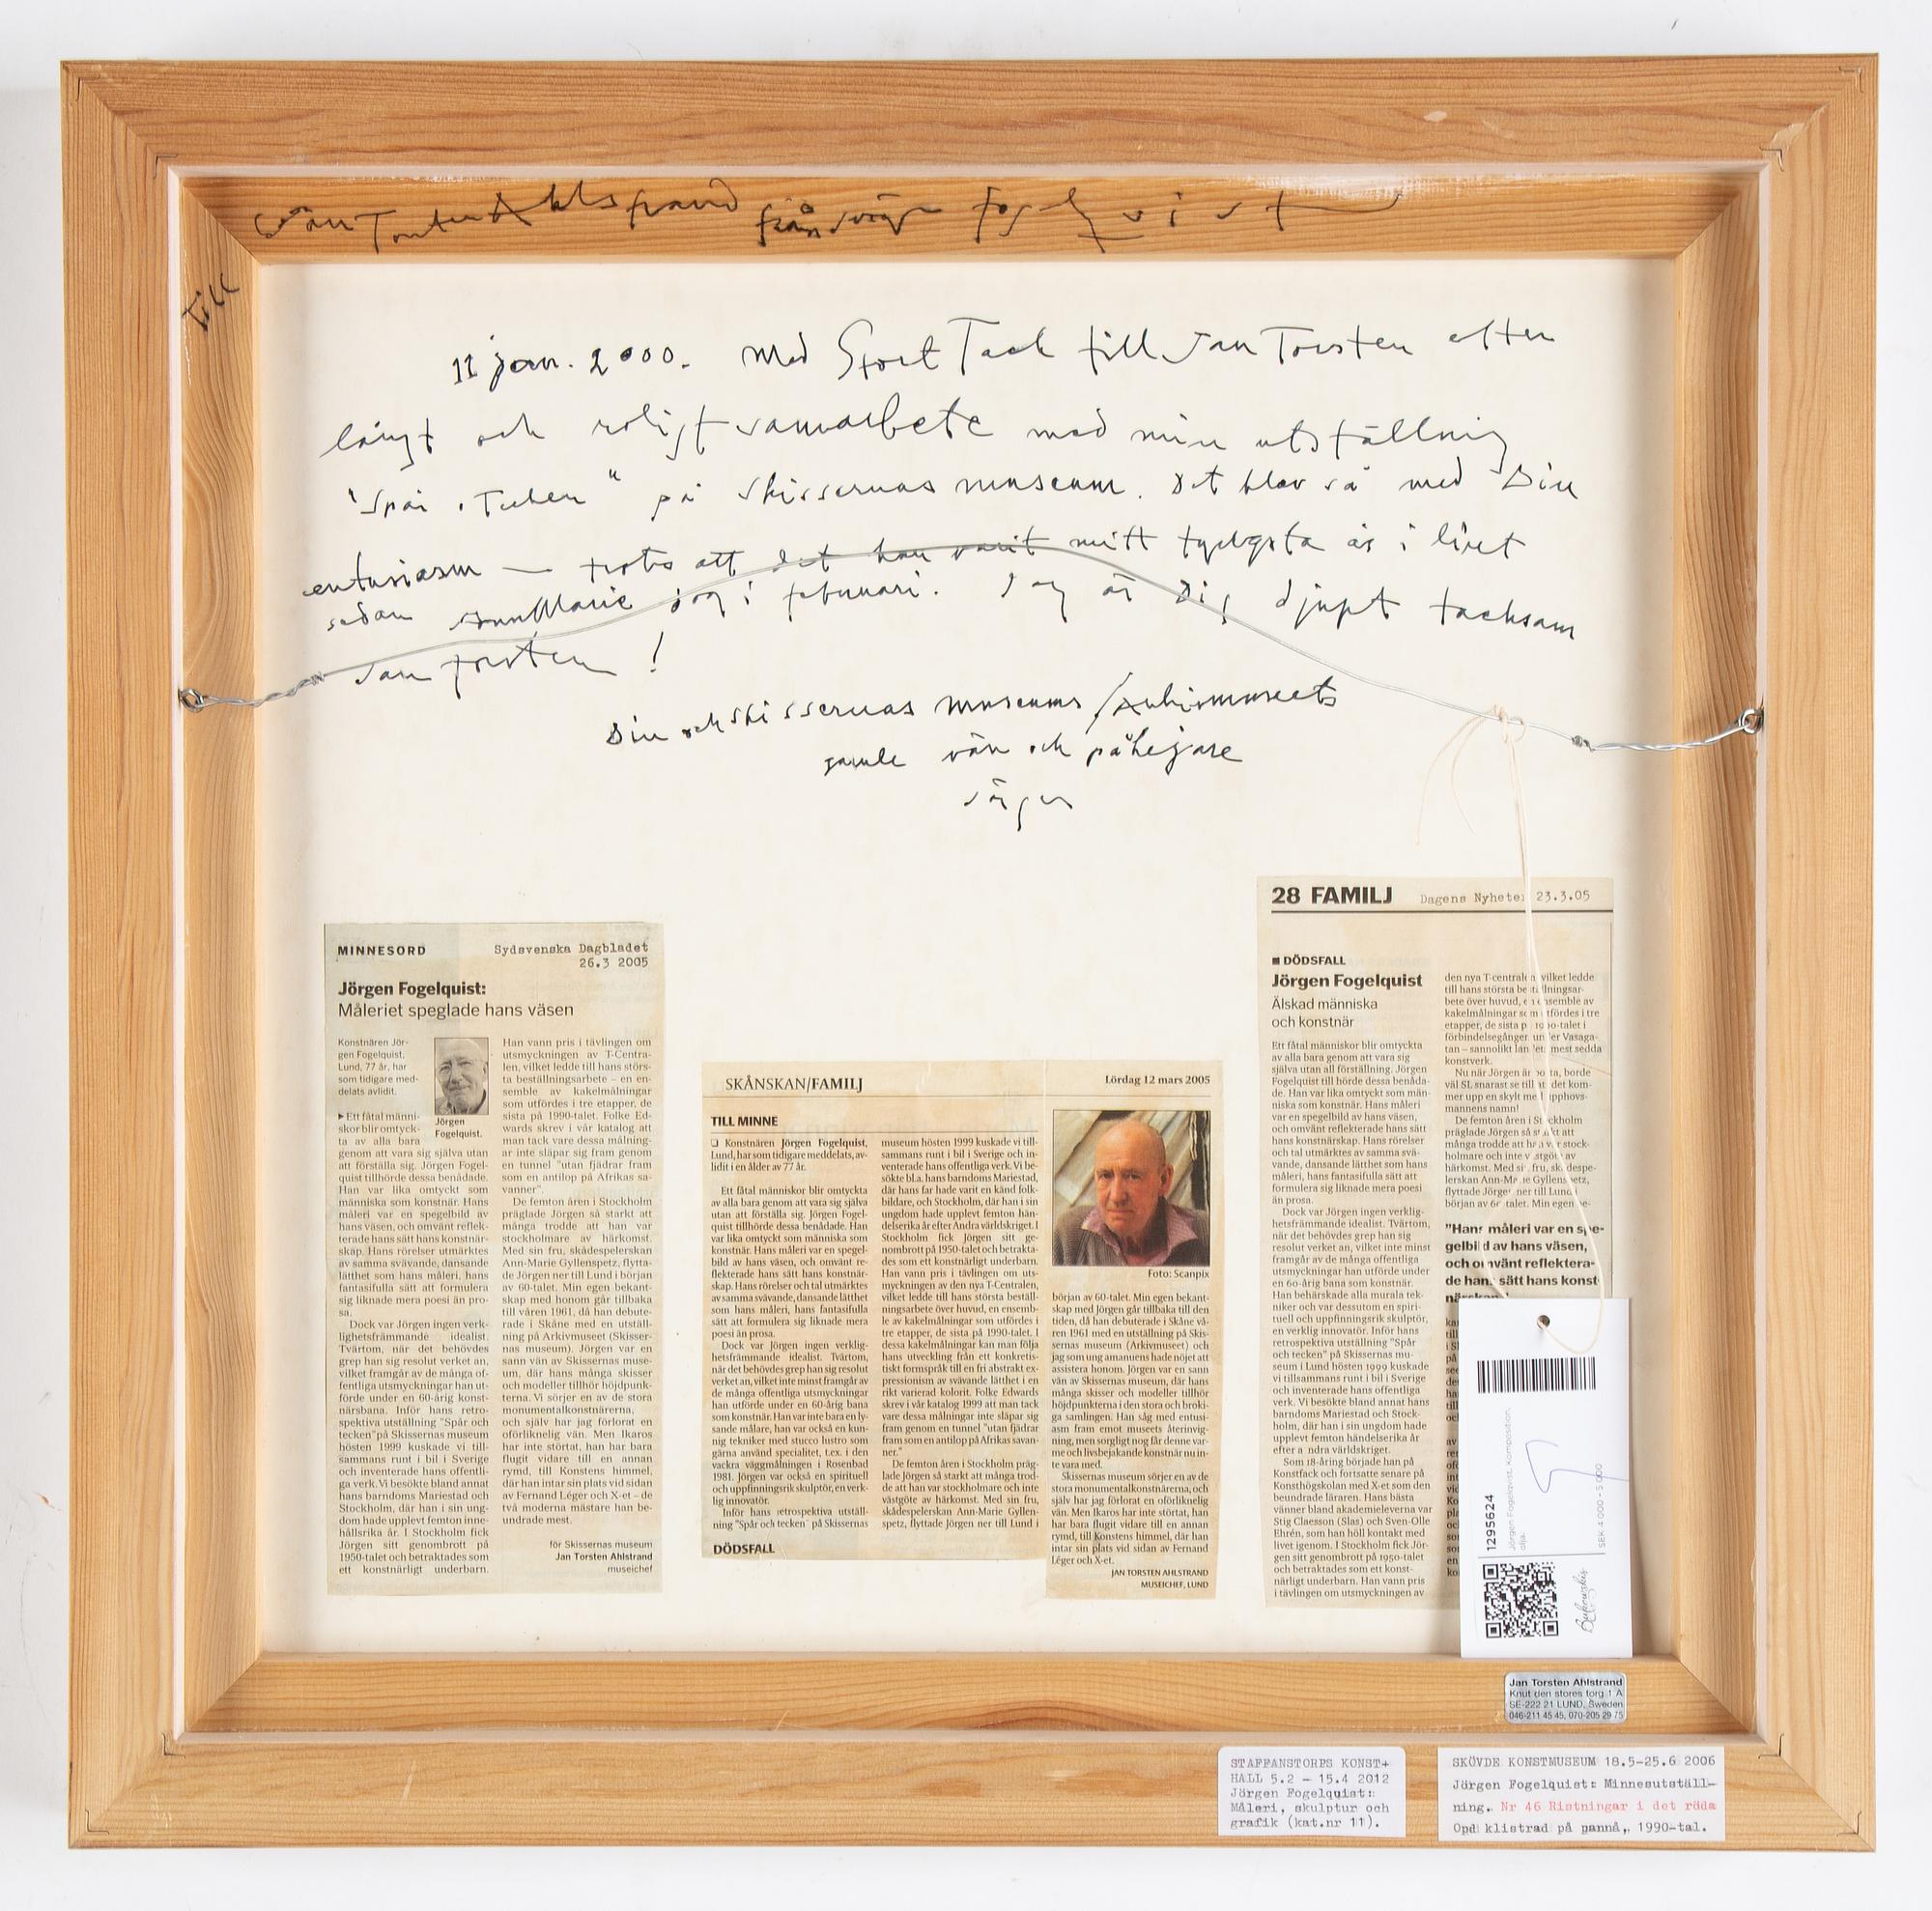 Jan Torsten Ahlstrand från Jörgen Fogelqvist
till
11 jan. 2000. Med Stort Tack till Jan Torsten efter
långt och roligt samarbete med min utställning
"Spår o Tecken" på Skissernas museum. Det blev så med Din
entusiasm — trots att det har varit mitt tyngsta år i livet
sedan AnnMarie dog i februari. Jag är Dig djupt tacksam
Jan Torsten!
Din och Skissernas museums / Arkivmuseets
gamle vän och påhejare
Jörgen
MINNESORD
Sydsvenska Dagbladet
26.3 2005
Jörgen Fogelquist:
Måleriet speglade hans väsen
Konstnären Jör-
gen Fogelquist,
Lund, 77 år, har
som tidigare med-
delats avlidit.
Jörgen
Fogelquist.
▶ Ett fåtal männi-
skor blir omtyck-
ta av alla bara
genom att vara sig själva utan
att förställa sig. Jörgen Fogel-
quist tillhörde dessa benådade.
Han var lika omtyckt som
människa som konstnär. Hans
måleri var en spegelbild av
hans väsen, och omvänt reflek-
terade hans sätt hans konstnär-
skap. Hans rörelser utmärktes
av samma svävande, dansande
lätthet som hans måleri, hans
fantasifulla sätt att formulera
sig liknade mera poesi än pro-
sa.
Dock var Jörgen ingen verk-
lighetsfrämmande idealist.
Tvärtom, när det behövdes
grep han sig resolut verket an,
vilket framgår av de många of-
fentliga utsmyckningar han ut-
förde under en 60-årig konst-
närsbana. Inför hans retro-
spektiva utställning "Spår och
tecken" på Skissernas museum
hösten 1999 kuskade vi till-
sammans runt i bil i Sverige
och inventerade hans offentli-
ga verk. Vi besökte bland annat
hans barndoms Mariestad och
Stockholm, där han i sin ung-
dom hade upplevt femton inne-
hållsrika år. I Stockholm fick
Jörgen sitt genombrott på
1950-talet och betraktades som
ett konstnärligt underbarn.
Han vann pris i tävlingen om
utsmyckningen av T-Centra-
len, vilket ledde till hans störs-
ta beställningsarbete – en en-
semble av kakelmålningar
som utfördes i tre etapper, de
sista på 1990-talet. Folke Ed-
wards skrev i vår katalog att
man tack vare dessa målning-
ar inte släpar sig fram genom
en tunnel "utan fjädrar fram
som en antilop på Afrikas sa-
vanner".
De femton åren i Stockholm
präglade Jörgen så starkt att
många trodde att han var
stockholmare av härkomst.
Med sin fru, skådespelerskan
Ann-Marie Gyllenspetz, flytta-
de Jörgen ner till Lund i början
av 60-talet. Min egen bekant-
skap med honom går tillbaka
till våren 1961, då han debute-
rade i Skåne med en utställ-
ning på Arkivmuseet (Skisser-
nas museum). Jörgen var en
sann vän av Skissernas muse-
um, där hans många skisser
och modeller tillhör höjdpunk-
terna. Vi sörjer en av de stora
monumentalkonstnärerna,
och själv har jag förlorat en
oförliknelig vän. Men Ikaros
har inte störtat, han har bara
flugit vidare till en annan
rymd, till Konstens himmel,
där han intar sin plats vid sidan
av Fernand Léger och X-et – de
två moderna mästare han be-
undrade mest.
för Skissernas museum
Jan Torsten Ahlstrand
museichef
SKÅNSKAN/FAMILJ
Lördag 12 mars 2005
TILL MINNE
❏ Konstnären Jörgen Fogelquist,
Lund, har som tidigare meddelats, av-
lidit i en ålder av 77 år.
Ett fåtal människor blir omtyckta
av alla bara genom att vara sig själva
utan att förställa sig. Jörgen Fogel-
quist tillhörde dessa benådade. Han
var lika omtyckt som människa som
konstnär. Hans måleri var en spegel-
bild av hans väsen, och omvänt re-
flekterade hans sätt hans konstnär-
skap. Hans rörelser och tal utmärktes
av samma svävande, dansande lätthet
som hans måleri, hans fantasifulla
sätt att formulera sig liknade mera
poesi än prosa.
Dock var Jörgen ingen verklig-
hetsfrämmande idealist. Tvärtom,
när det behövdes grep han sig resolut
verket an, vilket inte minst framgår av
de många offentliga utsmyckningar
han utförde under en 60-årig bana
som konstnär. Han var inte bara en ly-
sande målare, han var också en kun-
nig tekniker med stucco lustro som
gärna använd specialitet, t.ex. i den
vackra väggmålningen i Rosenbad
1981. Jörgen var också en spirituell
och uppfinningsrik skulptör, en verk-
lig innovatör.
Inför hans retrospektiva utställ-
ning "Spår och tecken" på Skissernas
DÖDSFALL
museum hösten 1999 kuskade vi till-
sammans runt i bil i Sverige och in-
venterade hans offentliga verk. Vi be-
sökte bl.a. hans barndoms Mariestad,
där hans far hade varit en känd folk-
bildare, och Stockholm, där han i sin
ungdom hade upplevt femton hän-
delserika år efter Andra världskriget. I
Stockholm fick Jörgen sitt ge-
nombrott på 1950-talet och betrakta-
des som ett konstnärligt underbarn.
Han vann pris i tävlingen om uts-
myckningen av den nya T-Centralen,
vilket ledde till hans största beställ-
ningsarbete över huvud, en ensemb-
le av kakelmålningar som utfördes i
tre etapper, de sista på 1990-talet. I
dessa kakelmålningar kan man följa
hans utveckling från ett konkretis-
tiskt formspråk till en fri abstrakt ex-
pressionism av svävande lätthet i en
rikt varierad kolorit. Folke Edwards
skrev i vår katalog 1999 att man tack
vare dessa målningar inte släpar sig
fram genom en tunnel "utan fjädrar
fram som en antilop på Afrikas savan-
ner."
De femton åren i Stockholm präg-
lade Jörgen så starkt att många trod-
de att han var stockholmare och inte
västgöte av härkomst. Med sin fru,
skådespelerskan Ann-Marie Gyllen-
spetz, flyttade Jörgen ner till Lund i
Foto: Scanpix
början av 60-talet. Min egen bekant-
skap med Jörgen går tillbaka till den
tiden, då han debuterade i Skåne vå-
ren 1961 med en utställning på Skis-
sernas museum (Arkivmuseet) och
jag som ung amanuens hade nöjet att
assistera honom. Jörgen var en sann
vän av Skissernas museum, där hans
många skisser och modeller tillhör
höjdpunkterna i den stora och broki-
ga samlingen. Han såg med entusi-
asm fram emot museets återinvig-
ning, men sorgligt nog får denne var-
me och livsbejakande konstnär nu in-
te vara med.
Skissernas museum sörjer en av de
stora monumentalkonstnärerna, och
själv har jag förlorat en oförliknelig
vän. Men Ikaros har inte störtat, han
har bara flugit vidare till en annan
rymd, till Konstens himmel, där han
intar sin plats vid sidan av Fernand
Léger och X-et.
JAN TORSTEN AHLSTRAND
MUSEICHEF, LUND
28 FAMILJ Dagens Nyheter 23.3.05
■ DÖDSFALL
Jörgen Fogelquist
Älskad människa
och konstnär
Ett fåtal människor blir omtyckta
av alla bara genom att vara sig
själva utan all förställning. Jörgen
Fogelquist till hörde dessa benåda-
de. Han var lika omtyckt som män-
niska som konstnär. Hans måleri
var en spegelbild av hans väsen,
och omvänt reflekterade hans sätt
hans konstnärskap. Hans rörelser
och tal utmärktes av samma svä-
vande, dansande lätthet som hans
måleri, hans fantasifulla sätt att
formulera sig liknade mera poesi
än prosa.
Dock var Jörgen ingen verklig-
hetsfrämmande idealist. Tvärtom,
när det behövdes grep han sig
resolut verket an, vilket inte minst
framgår av de många offentliga
utsmyckningar han utförde under
en 60-årig bana som konstnär.
Han behärskade alla murala tek-
niker och var dessutom en spiri-
tuell och uppfinningsrik skulptör,
en verklig innovatör. Inför hans
retrospektiva utställning "Spår
och tecken" på Skissernas mu-
seum i Lund hösten 1999 kuskade
vi tillsammans runt i bil i Sverige
och inventerade hans offentliga
verk. Vi besökte bland annat hans
barndoms Mariestad och Stock-
holm, där han i sin ungdom hade
upplevt femton händelserika år
efter andra världskriget.
Som 18-åring började han på
Konstfack och fortsatte senare på
Konsthögskolan med X-et som den
beundrade läraren. Hans bästa
vänner bland akademieleverna var
Stig Claesson (Slas) och Sven-Olle
Ehrén, som han höll kontakt med
livet igenom. I Stockholm fick Jör-
gen sitt genombrott på 1950-talet
och betraktades som ett konst-
närligt underbarn. Han vann pris
i tävlingen om utsmyckningen av
den nya T-centralen, vilket ledde
till hans största beställningsar-
bete över huvud, en ensemble av
kakelmålningar som utfördes i tre
etapper, de sista på 1990-talet i
förbindelsegången under Vasaga-
tan – sannolikt landets mest sedda
konstverk.
Nu när Jörgen är borta, borde
väl SL snarast se till att det kom-
mer upp en skylt med upphovs-
mannens namn!
De femton åren i Stockholm
präglade Jörgen så starkt att
många trodde att han var stock-
holmare och inte västgöte av
härkomst. Med sin fru, skådespe-
lerskan Ann-Marie Gyllenspetz,
flyttade Jörgen ner till Lund i
början av 60-talet. Min egen be-
"Hans måleri var en spe-
gelbild av hans väsen,
och omvänt reflektera-
de hans sätt hans konst-
närskap."
1295624
Jörgen Fogelqvist, Komposition,
olja.
SEK 4 000 - 5 000
Bukowskis
Jan Torsten Ahlstrand
Knut den stores torg 1 A
SE-222 21 LUND, Sweden
046-211 45 45, 070-205 29 75
STAFFANSTORPS KONST+
HALL 5.2 – 15.4 2012
Jörgen Fogelquist:
Måleri, skulptur och
grafik (kat.nr 11).
SKÖVDE KONSTMUSEUM 18.5-25.6 2006
Jörgen Fogelquist: Minnesutställ-
ning. Nr 46 Ristningar i det röda
Opd klistrad på pannå, 1990-tal.